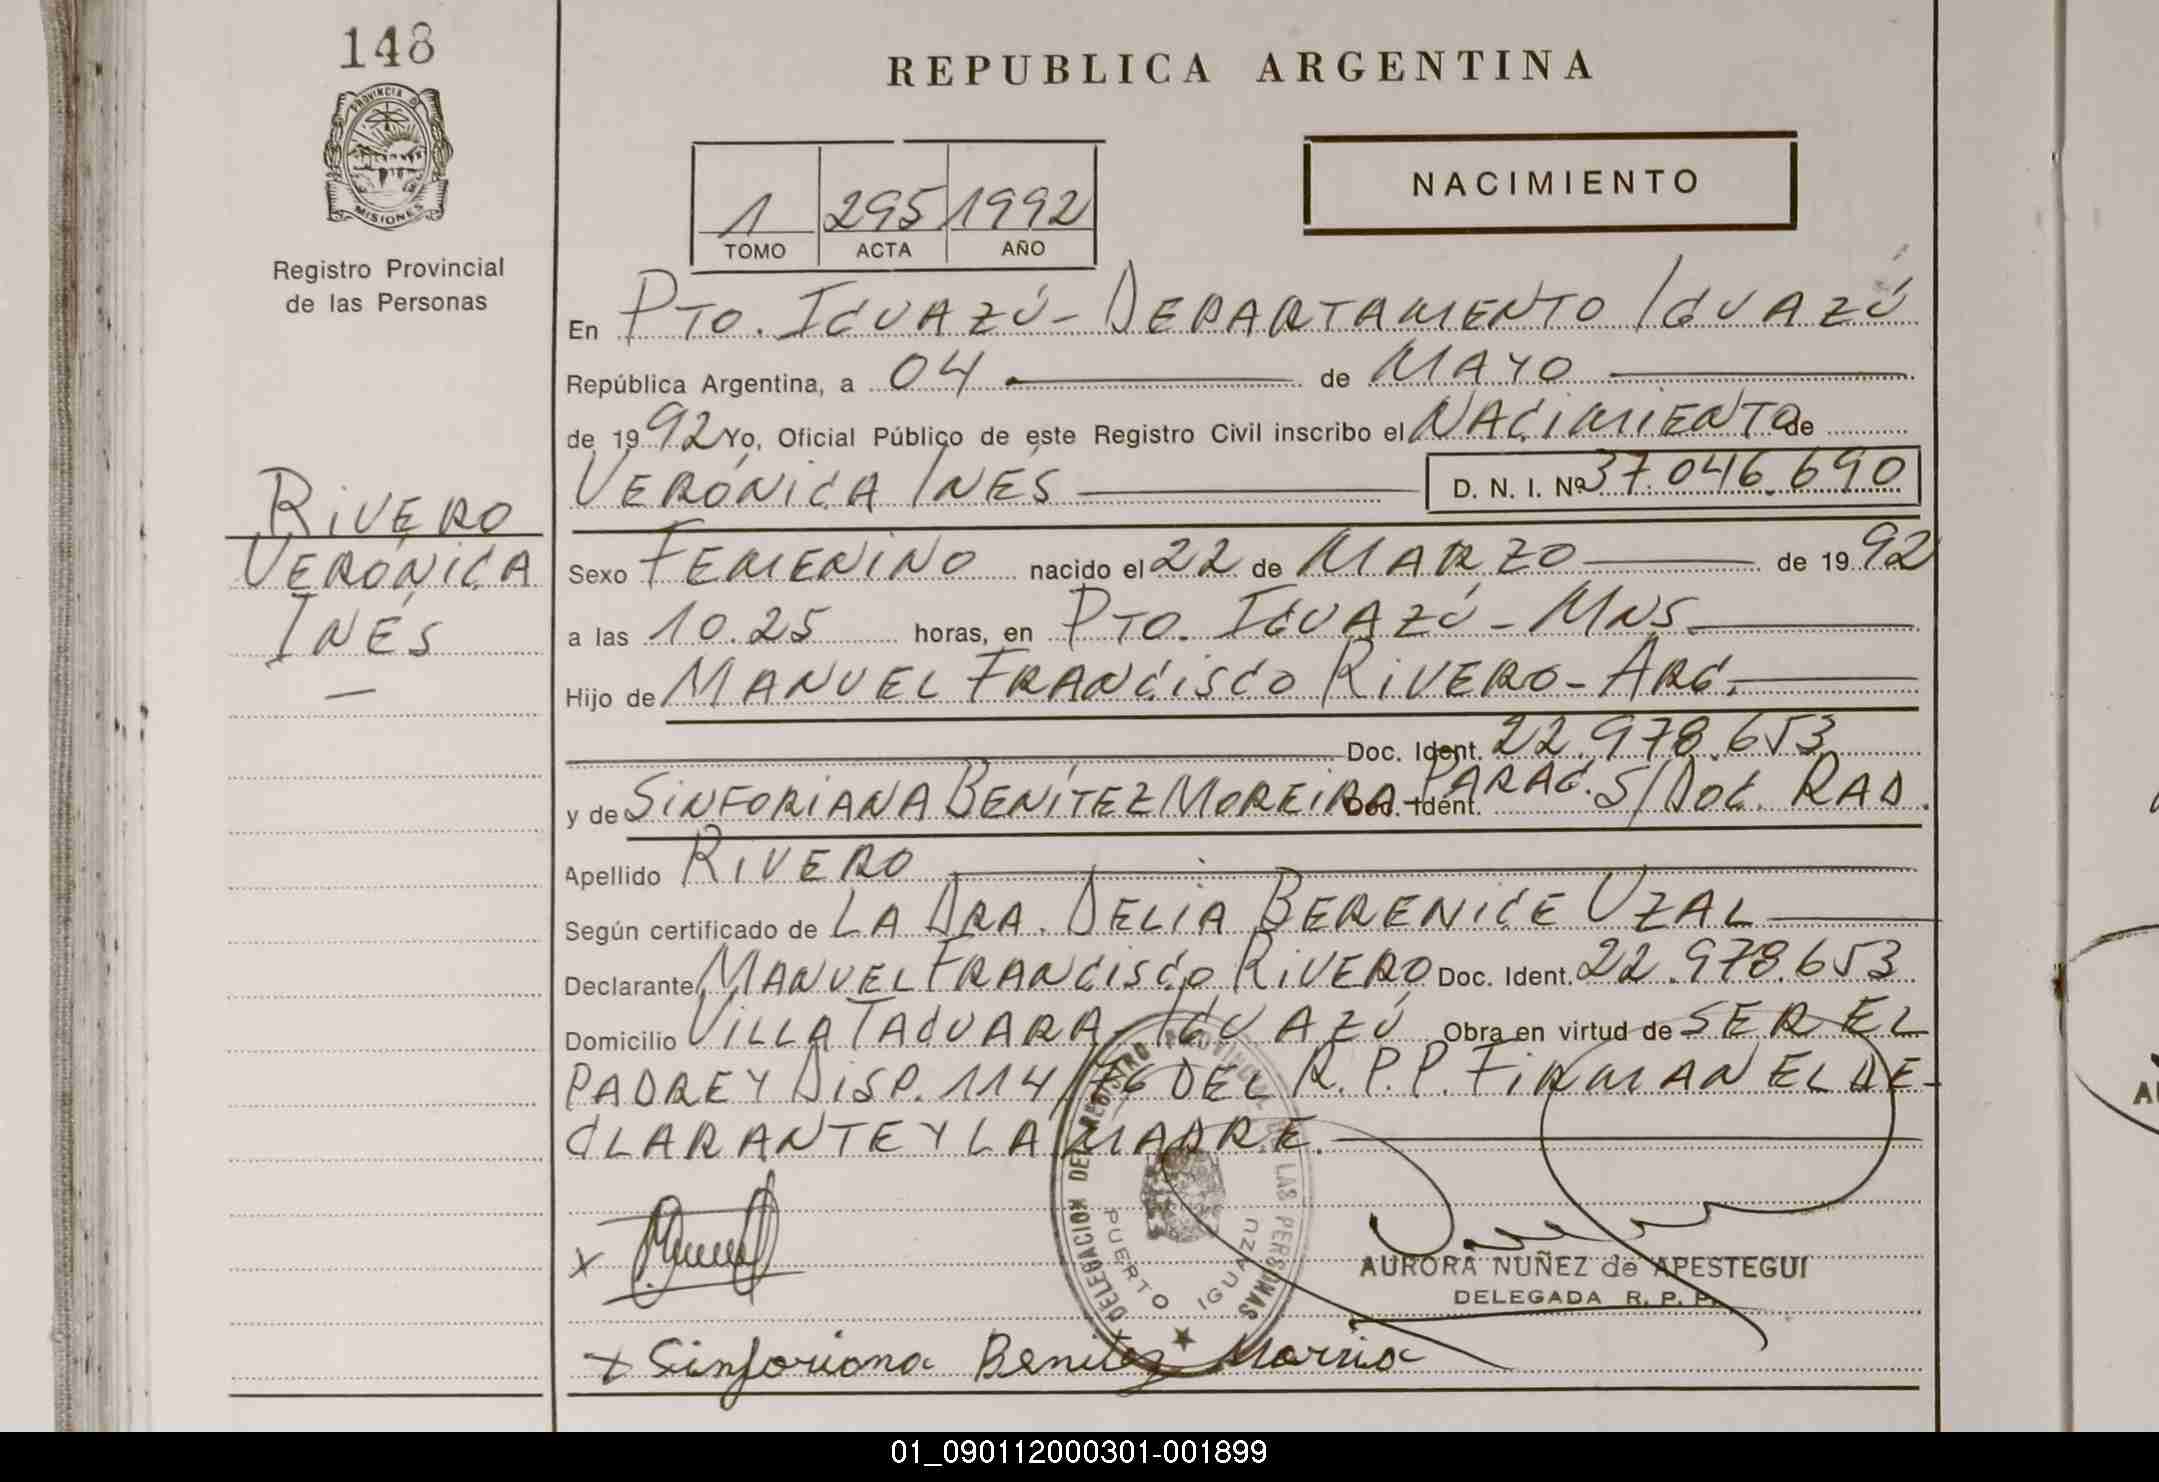 148
PROVINCIA DE
MISIONES
Registro Provincial
de las Personas
RIVERO
VERÓNICA
INÉS
REPUBLICA ARGENTINA
NACIMIENTO
1 295 1992
TOMO ACTA AÑO
En PTO. IGUAZÚ - DEPARTAMENTO IGUAZÚ
República Argentina, a 04 de MAYO
de 1992 Yo, Oficial Público de este Registro Civil inscribo el NACIMIENTO de
VERÓNICA INÉS D. N. I. Nº 37.046.690
Sexo FEMENINO nacido el 22 de MARZO de 1992
a las 10.25 horas, en PTO. IGUAZÚ - MNS.
Hijo de MANUEL FRANCISCO RIVERO - ARG.
Doc. Ident. 22.978.653
y de SINFORIANA BENÍTEZ MOREIRA - PARAG. Doc. Ident. S/DOC. RAD.
Apellido RIVERO
Según certificado de LA DRA. DELIA BERENICE UZAL
Declarante MANUEL FRANCISCO RIVERO Doc. Ident. 22.978.653
Domicilio VILLA TACUARA - IGUAZÚ Obra en virtud de SER EL
PADRE Y DISP. 114/76 DEL R.P.P. FIRMAN EL DE-
CLARANTE Y LA MADRE.
DELEGACION DEL REGISTRO PROVINCIAL DE LAS PERSONAS
PUERTO IGUAZU
AURORA NUÑEZ de APESTEGUI
DELEGADA R. P. P.
x
x Sinforiana Benitez
01_090112000301-001899